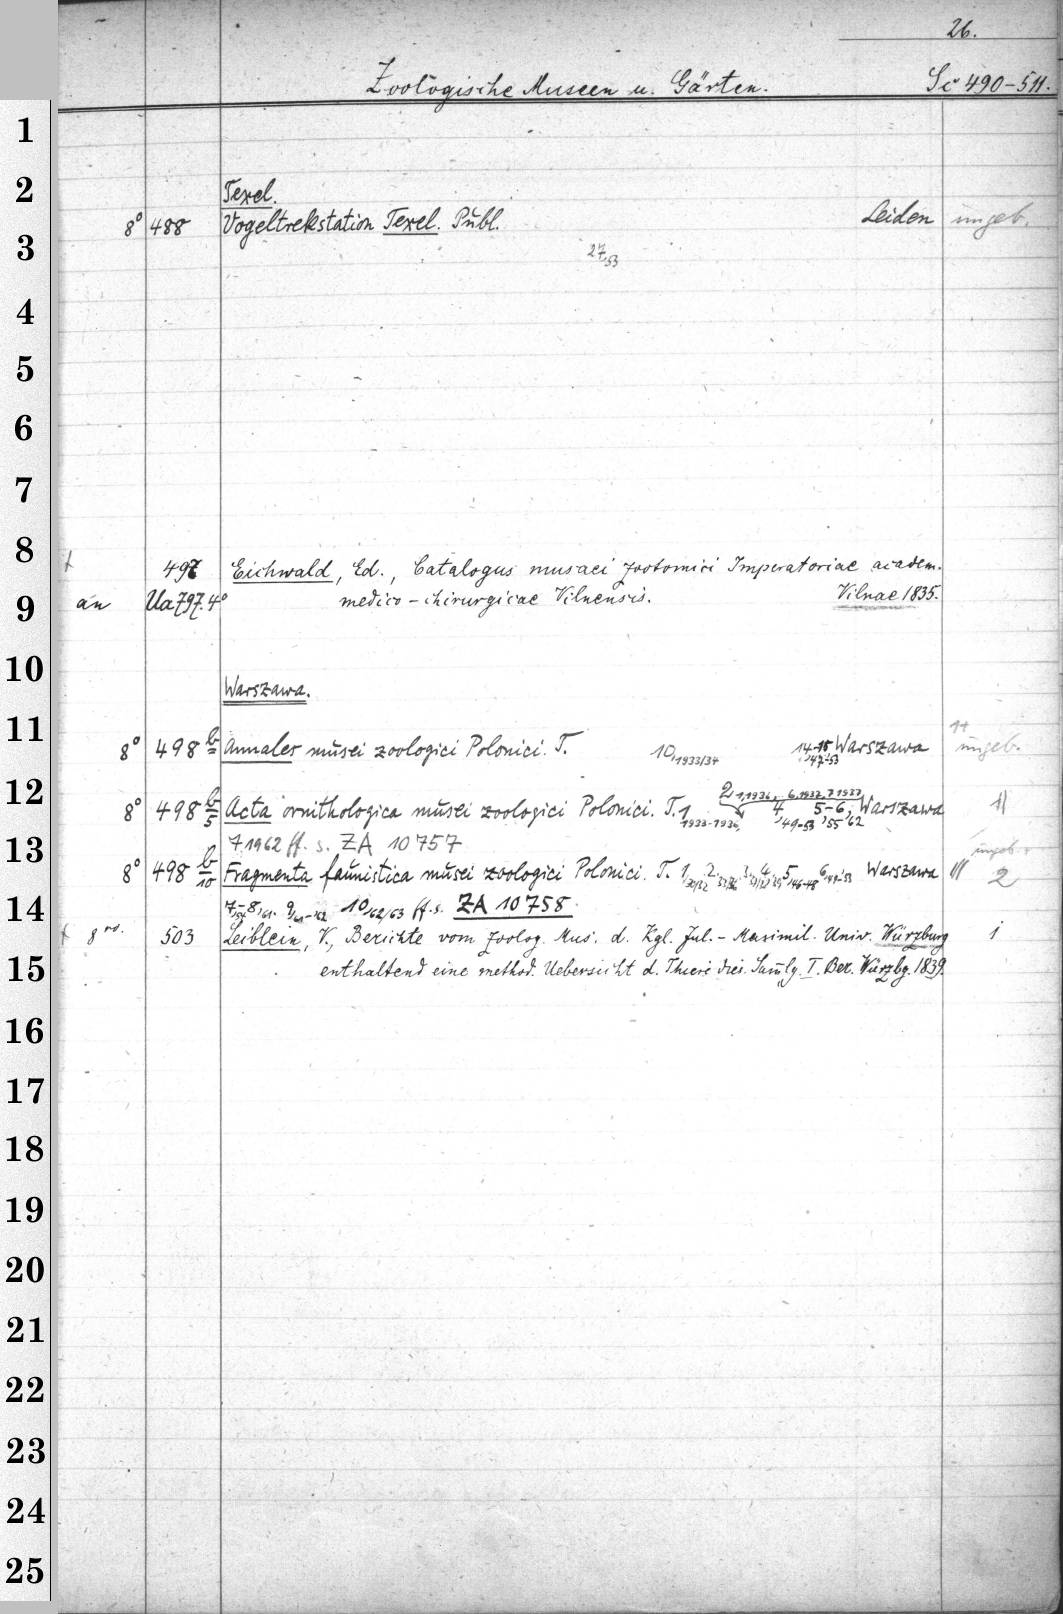 26.
Zoologische Museen u. Gärten. Sc 490-511.
1
2 Texel.
8° 488 Vogeltrekstation Texel. Publ. Leiden ungeb.
3 27,53
4
5
6
7
8
497 Eichwald, Ed., Catalogus musaei zootomici Imperatoriae academ.
9 an Ua 797.4° medico-chirurgicae Vilnensis. Vilnae 1835.
10
Warszawa.
11
8° 498 b Annales musei zoologici Polonici. T. 10,1933/34 14-15,47-53 Warszawa ungeb.
12 2,1,1936, 6.1937, 7 1937
8° 498 b/5 Acta ornithologica musei zoologici Polonici. T. 1 1933-1936, 4,49-53 5-6,55,62 Warszawa
13 7 1962 ff. s. ZA 10757 ungeb.
8° 498 b/10 Fragmenta faunistica musei zoologici Polonici. T. 1,30/32 Warszawa 2
14 10/62/63 ff. s. ZA 10758.
8vo. 503 Leiblein, V., Berichte vom Zoolog. Mus. d. Kgl. Jul.-Maximil. Univ. Würzburg
15 enthaltend eine method. Uebersicht d. Thiere dies. Samlg. I. Ber. Würzbg. 1839.
16
17
18
19
20
21
22
23
24
25